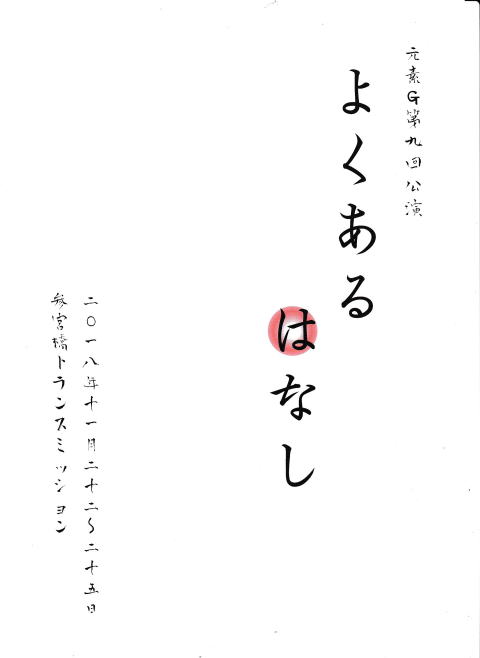 元素G第九回公演
よくある
はなし
二〇一八年十一月二十二〜二十五日
参宮橋トランスミッション